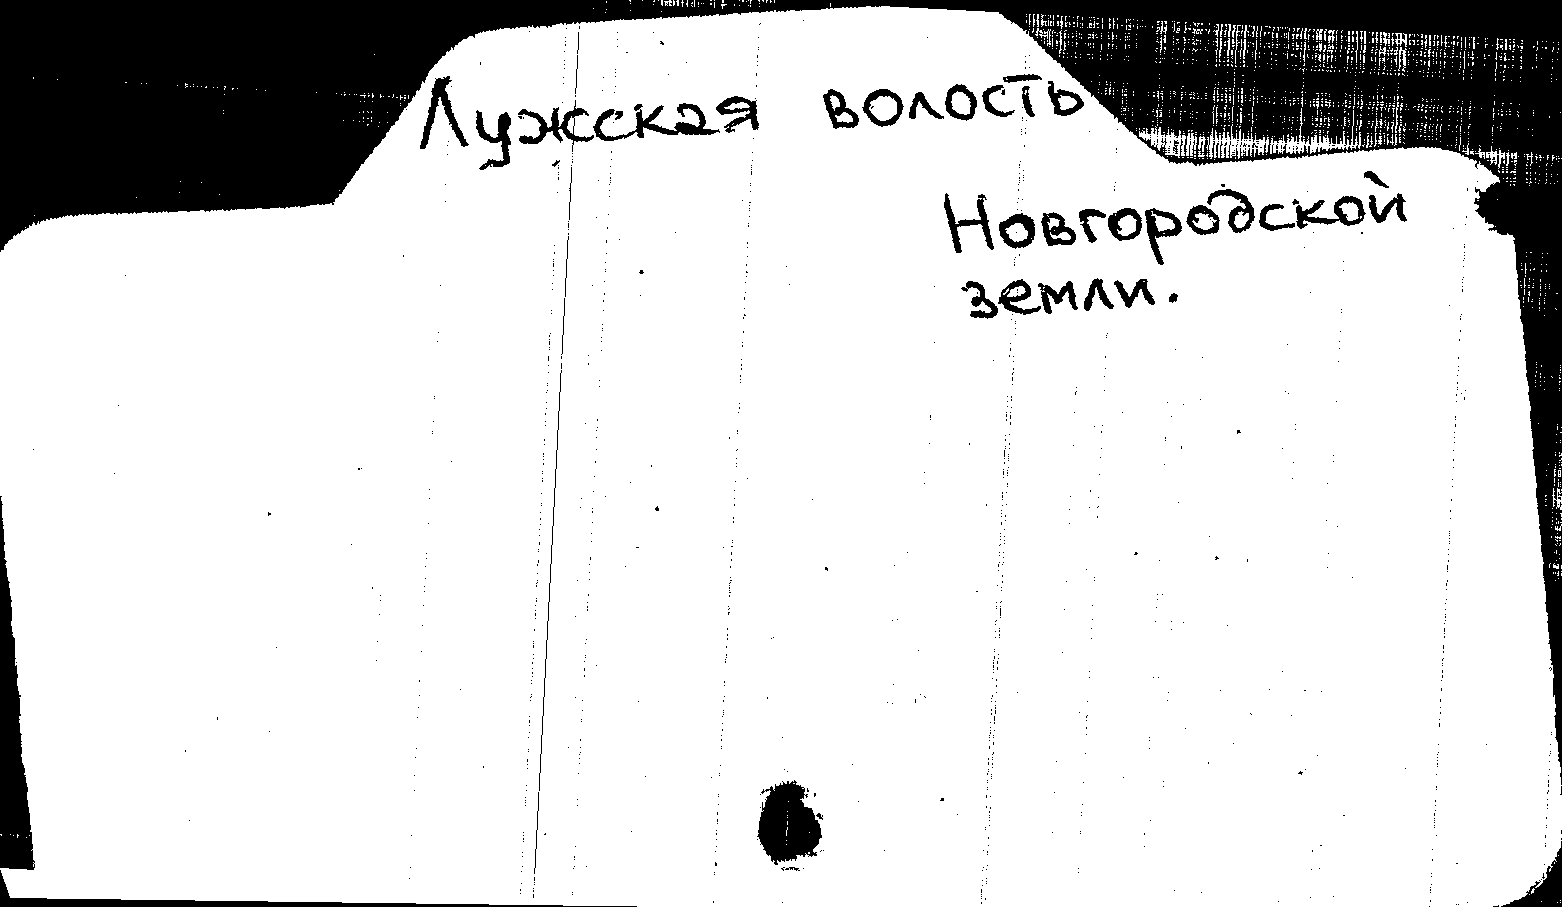 Лужская волость
Новгородской
земли.